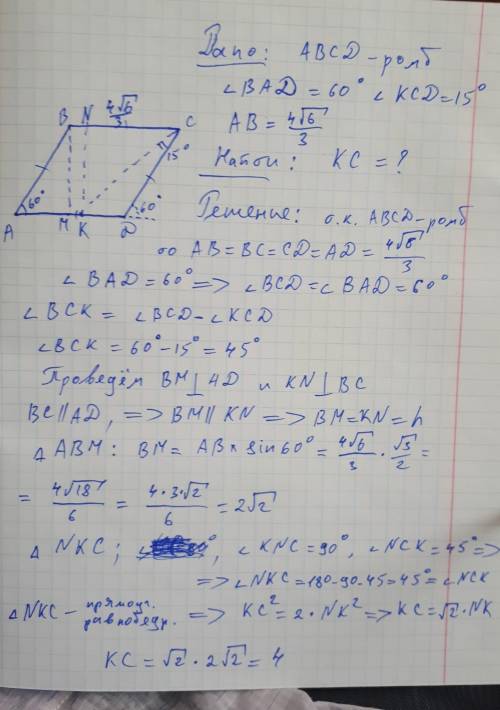 Дано: ABCD - ромб
∠BAD = 60° ∠KCD = 15°
AB = 4√6/3
Найти: KC = ?
B N 4√6/3 C
15°
60° 60°
A M K D
Решение: т.к. ABCD - ромб
то AB = BC = CD = AD = 4√6/3
∠BAD = 60° => ∠BCD = ∠BAD = 60°
∠BCK = ∠BCD - ∠KCD
∠BCK = 60° - 15° = 45°
Проведём BM ⊥ AD и KN ⊥ BC
BC || AD, => BM || KN => BM = KN = h
△ABM: BM = AB × sin 60° = 4√6/3 · √3/2 =
= 4√18/6 = 4·3√2/6 = 2√2
△NKC; ∠KNC = 90°, ∠NCK = 45° =>
=> ∠NKC = 180-90-45 = 45° = ∠NCK
△NKC - прямоуг. равнобедр. => KC² = 2·NK² => KC = √2·NK
KC = √2 · 2√2 = 4